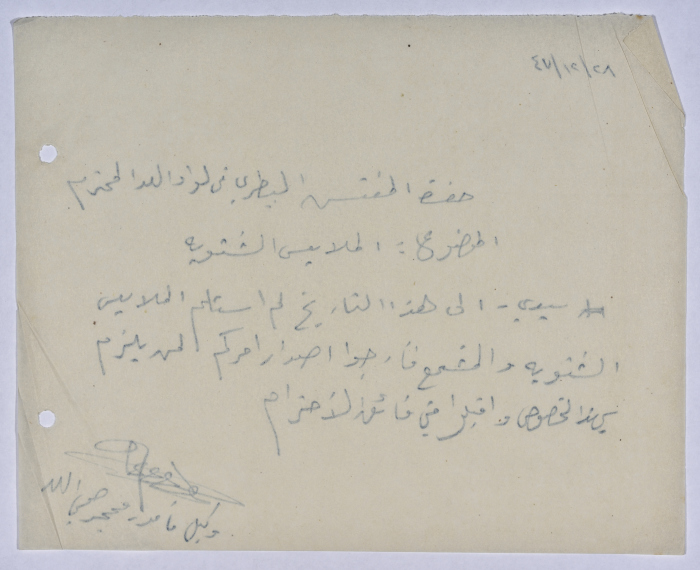 ٤٧/١٢/٢٨
حضرة المفتش البيطري في لواء اللد المحترم
الموضوع : الملابس الشتويه
سيدي - الى هذا التاريخ لم استلم الملابس
الشتويه والمشمع فارجوا اصدار امركم لمن يلزم
بهذا الخصوص واقبلوا مني فائق الاحترام
وكيل مأمور محجر صحي اللد